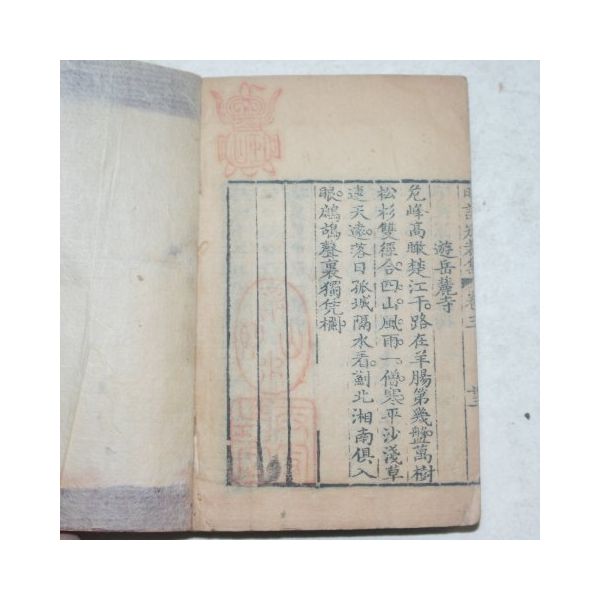 遊岳麓寺
危峰高瞰楚江干。路在羊腸第幾盤。萬樹
松杉雙徑合。四山風雨一僧寒。平沙淺草
連天遠。落日孤城隔水看。薊北湘南俱入
眼。鷓鴣聲裏獨凭欄。
卷三